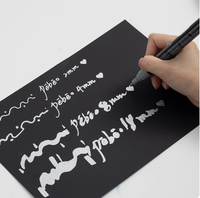 pebeo 2mm ♥
pebeo 4mm ♥
pebeo 8mm ♥
pebeo 18mm ♥